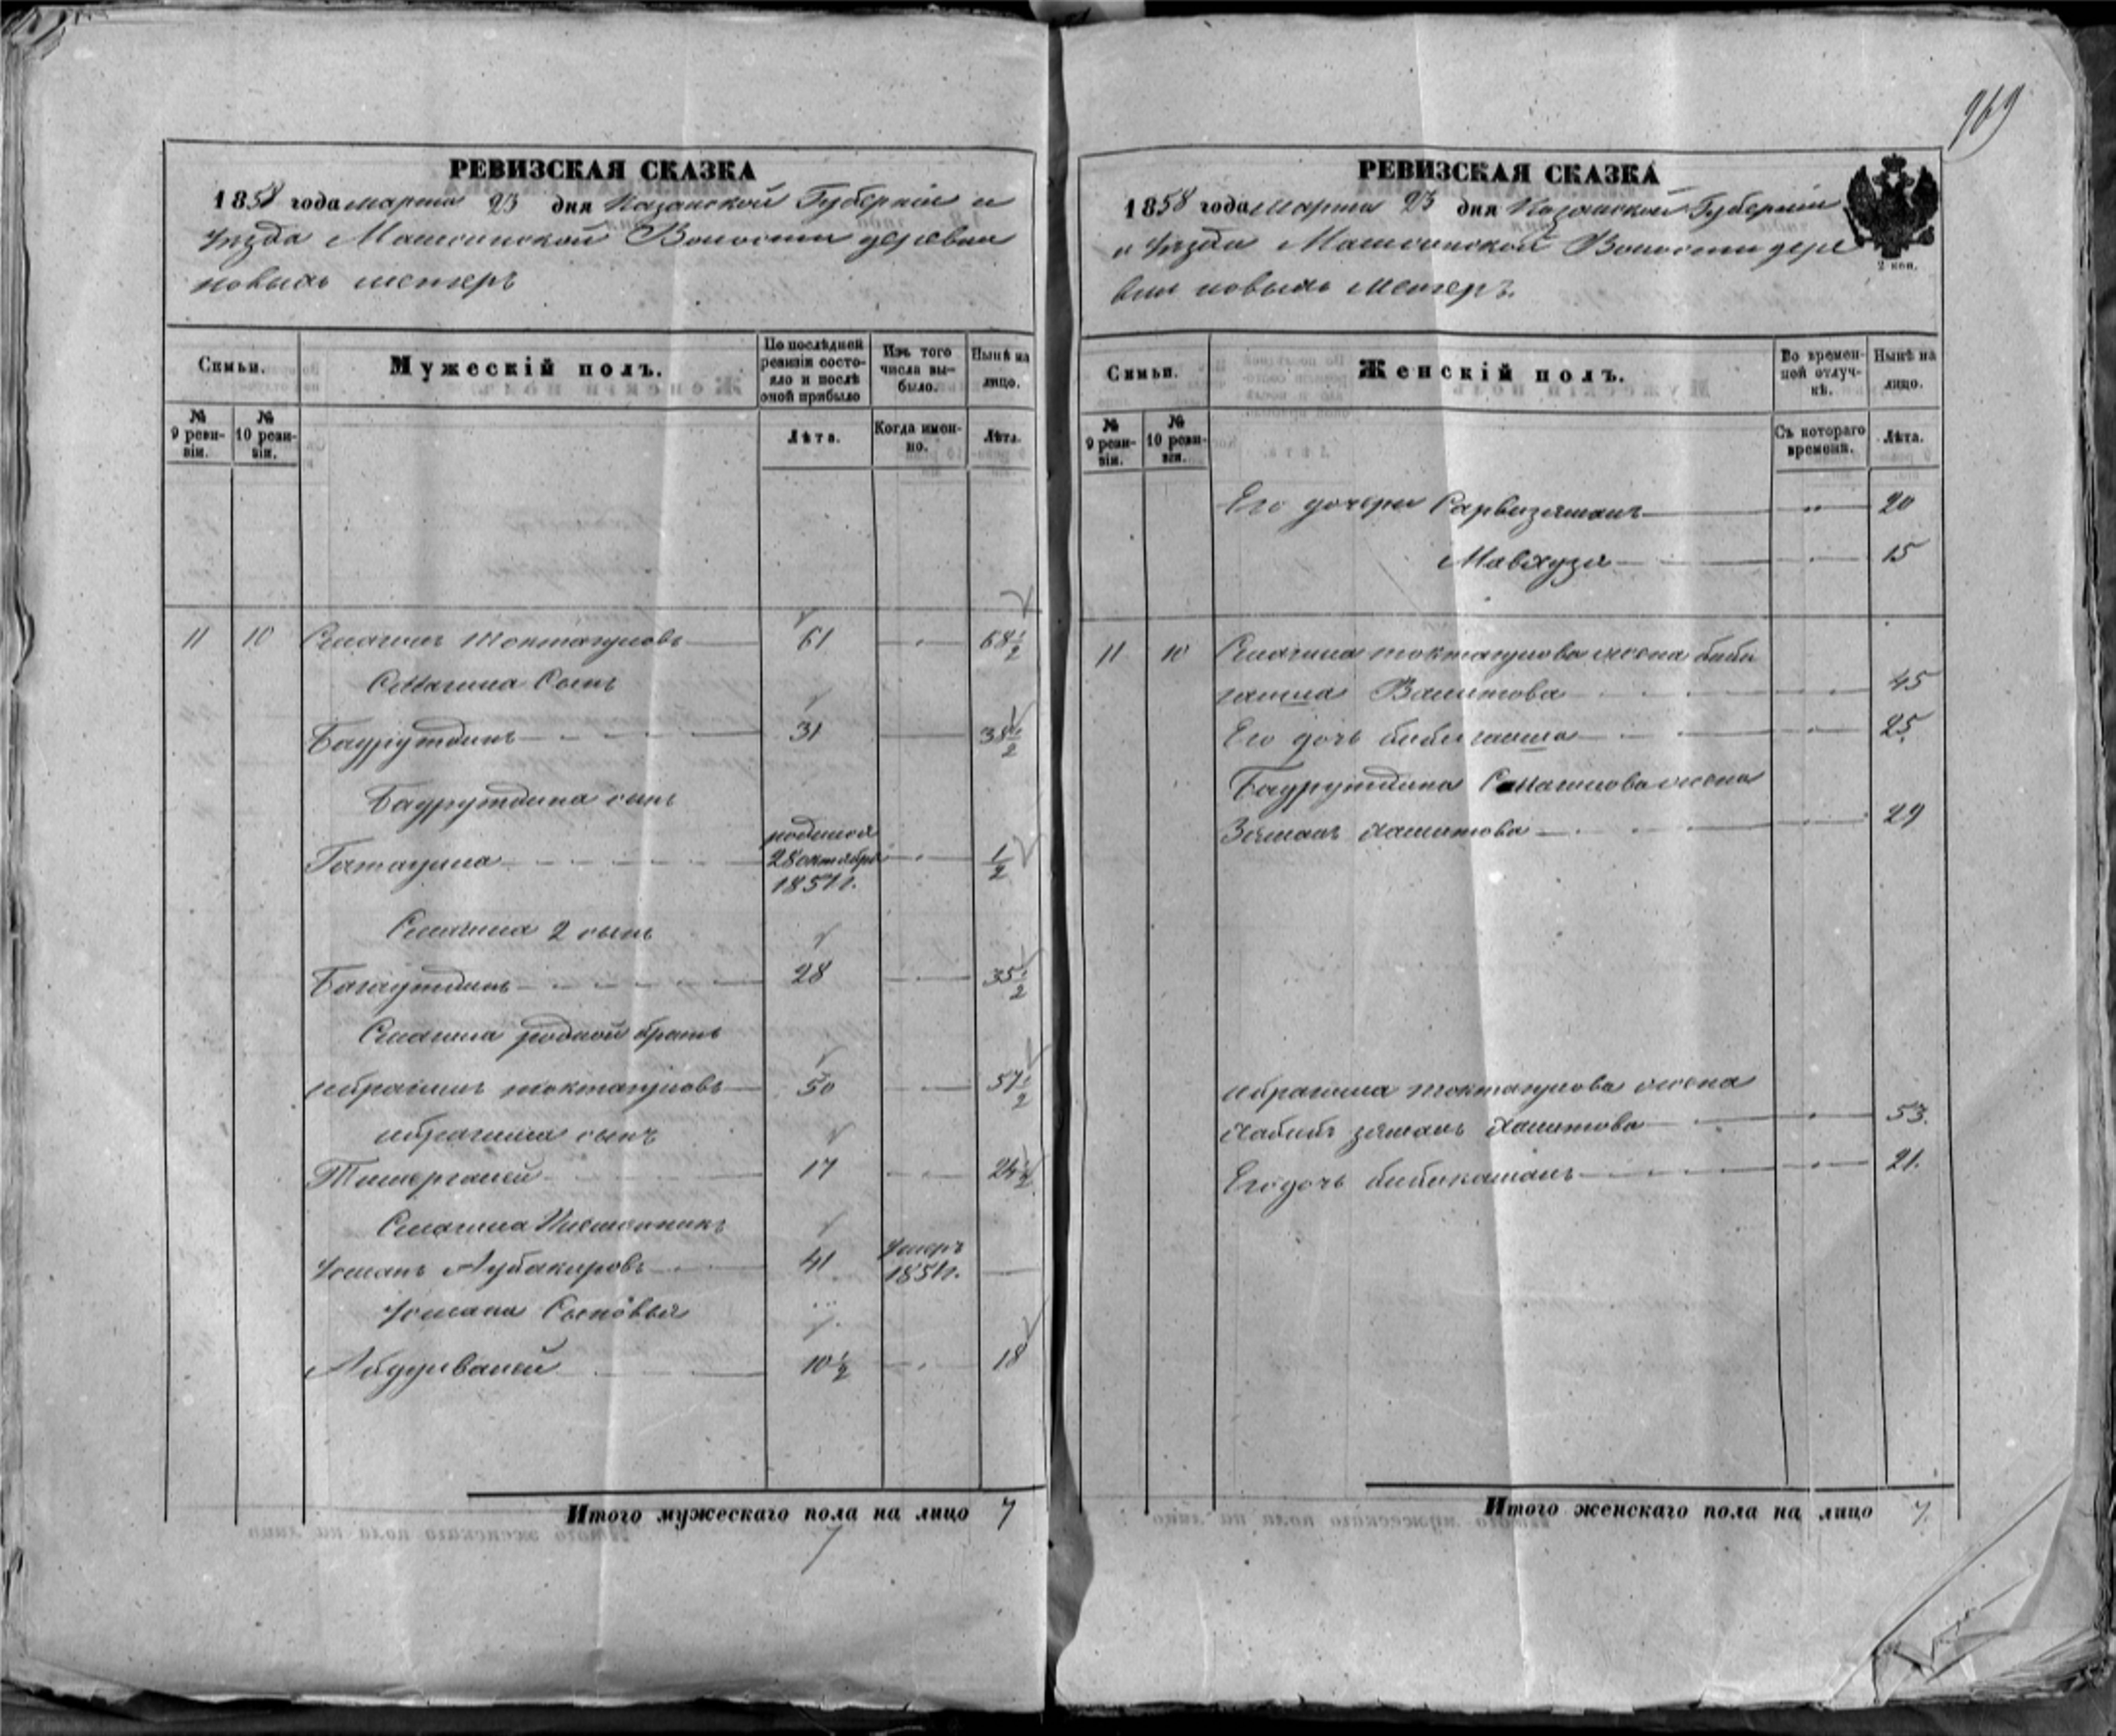 969
РЕВИЗСКАЯ СКАЗКА
1858 года марта 23 дня Казанской Губерніи и
Уѣзда Волости деревни
новыхъ менгеръ
Семьи.
Мужескій полъ.
По послѣдней ревизіи состояло и послѣ оной прибыло
Изъ того числа выбыло.
Нынѣ на лицо.
№ 9 ревизіи.
№ 10 ревизіи.
Лѣта.
Когда именно.
Лѣта.
11 10 Смагилъ Токтагуловъ 61 68½
Смагила Сынъ
Баурутдинъ 31 38½
Баурутдина сынъ
родился
28 октября ½
1857 г.
Смагила 2 сынъ
Багаутдинъ 28 35½
Смагила родной братъ
ибрагимъ токтагуловъ 50 57½
ибрагима сынъ
Тимергалей 17 24½
Смагила
Усманъ Аубакировъ 41 умеръ 1857г.
Усмана Сыновья
Абдулвалей 10½ 18
Итого мужескаго пола на лицо 7
7
РЕВИЗСКАЯ СКАЗКА
1858 года марта 23 дня Казанской Губерніи
и Уѣзда Волости дере
вни новыхъ менгеръ.
2 коп.
Семьи.
Женскій полъ.
Во временной отлучкѣ.
Нынѣ на лицо.
№ 9 ревизіи.
№ 10 ревизіи.
Съ котораго времени.
Лѣта.
Его дочери Сарвизяманъ 20
Мавхузя 15
11 10 Смагила токтагулова жена биби
Валитова 45
Его дочь 25
Баурутдина Смагилова жена
Зямалъ Халитова 29
ибрагима токтагулова жена
Халитова 53.
Его дочь бибикамалъ 21.
Итого женскаго пола на лицо 7.